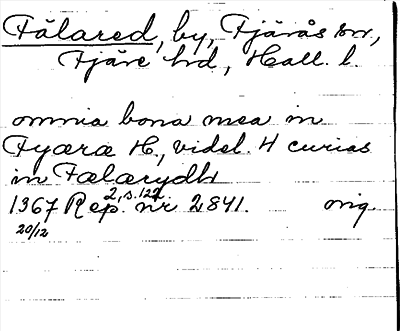 Fälared, by, Fjärås sn,
Fjäre hd, Hall. l.
omnia bona mea in
Fyæræ H., videl. 4 curias
in Fælærydh
2, s. 122
1367 Rep. nr 2841. orig.
20/12